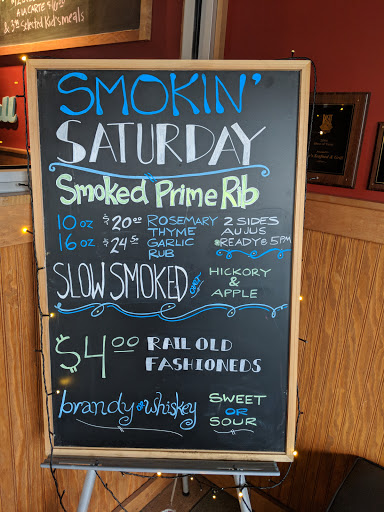 A LA CARTE
& 3 Selected Kid's meals
SMOKIN'
SATURDAY
Smoked Prime Rib
10 oz $20.00 ROSEMARY 2 SIDES
16 oz $24.50 THYME AU JUS
GARLIC READY @ 5PM
RUB
SLOW SMOKED over HICKORY
&
APPLE
$4.00 RAIL OLD
FASHIONEDS
brandy or whiskey SWEET
OR
SOUR